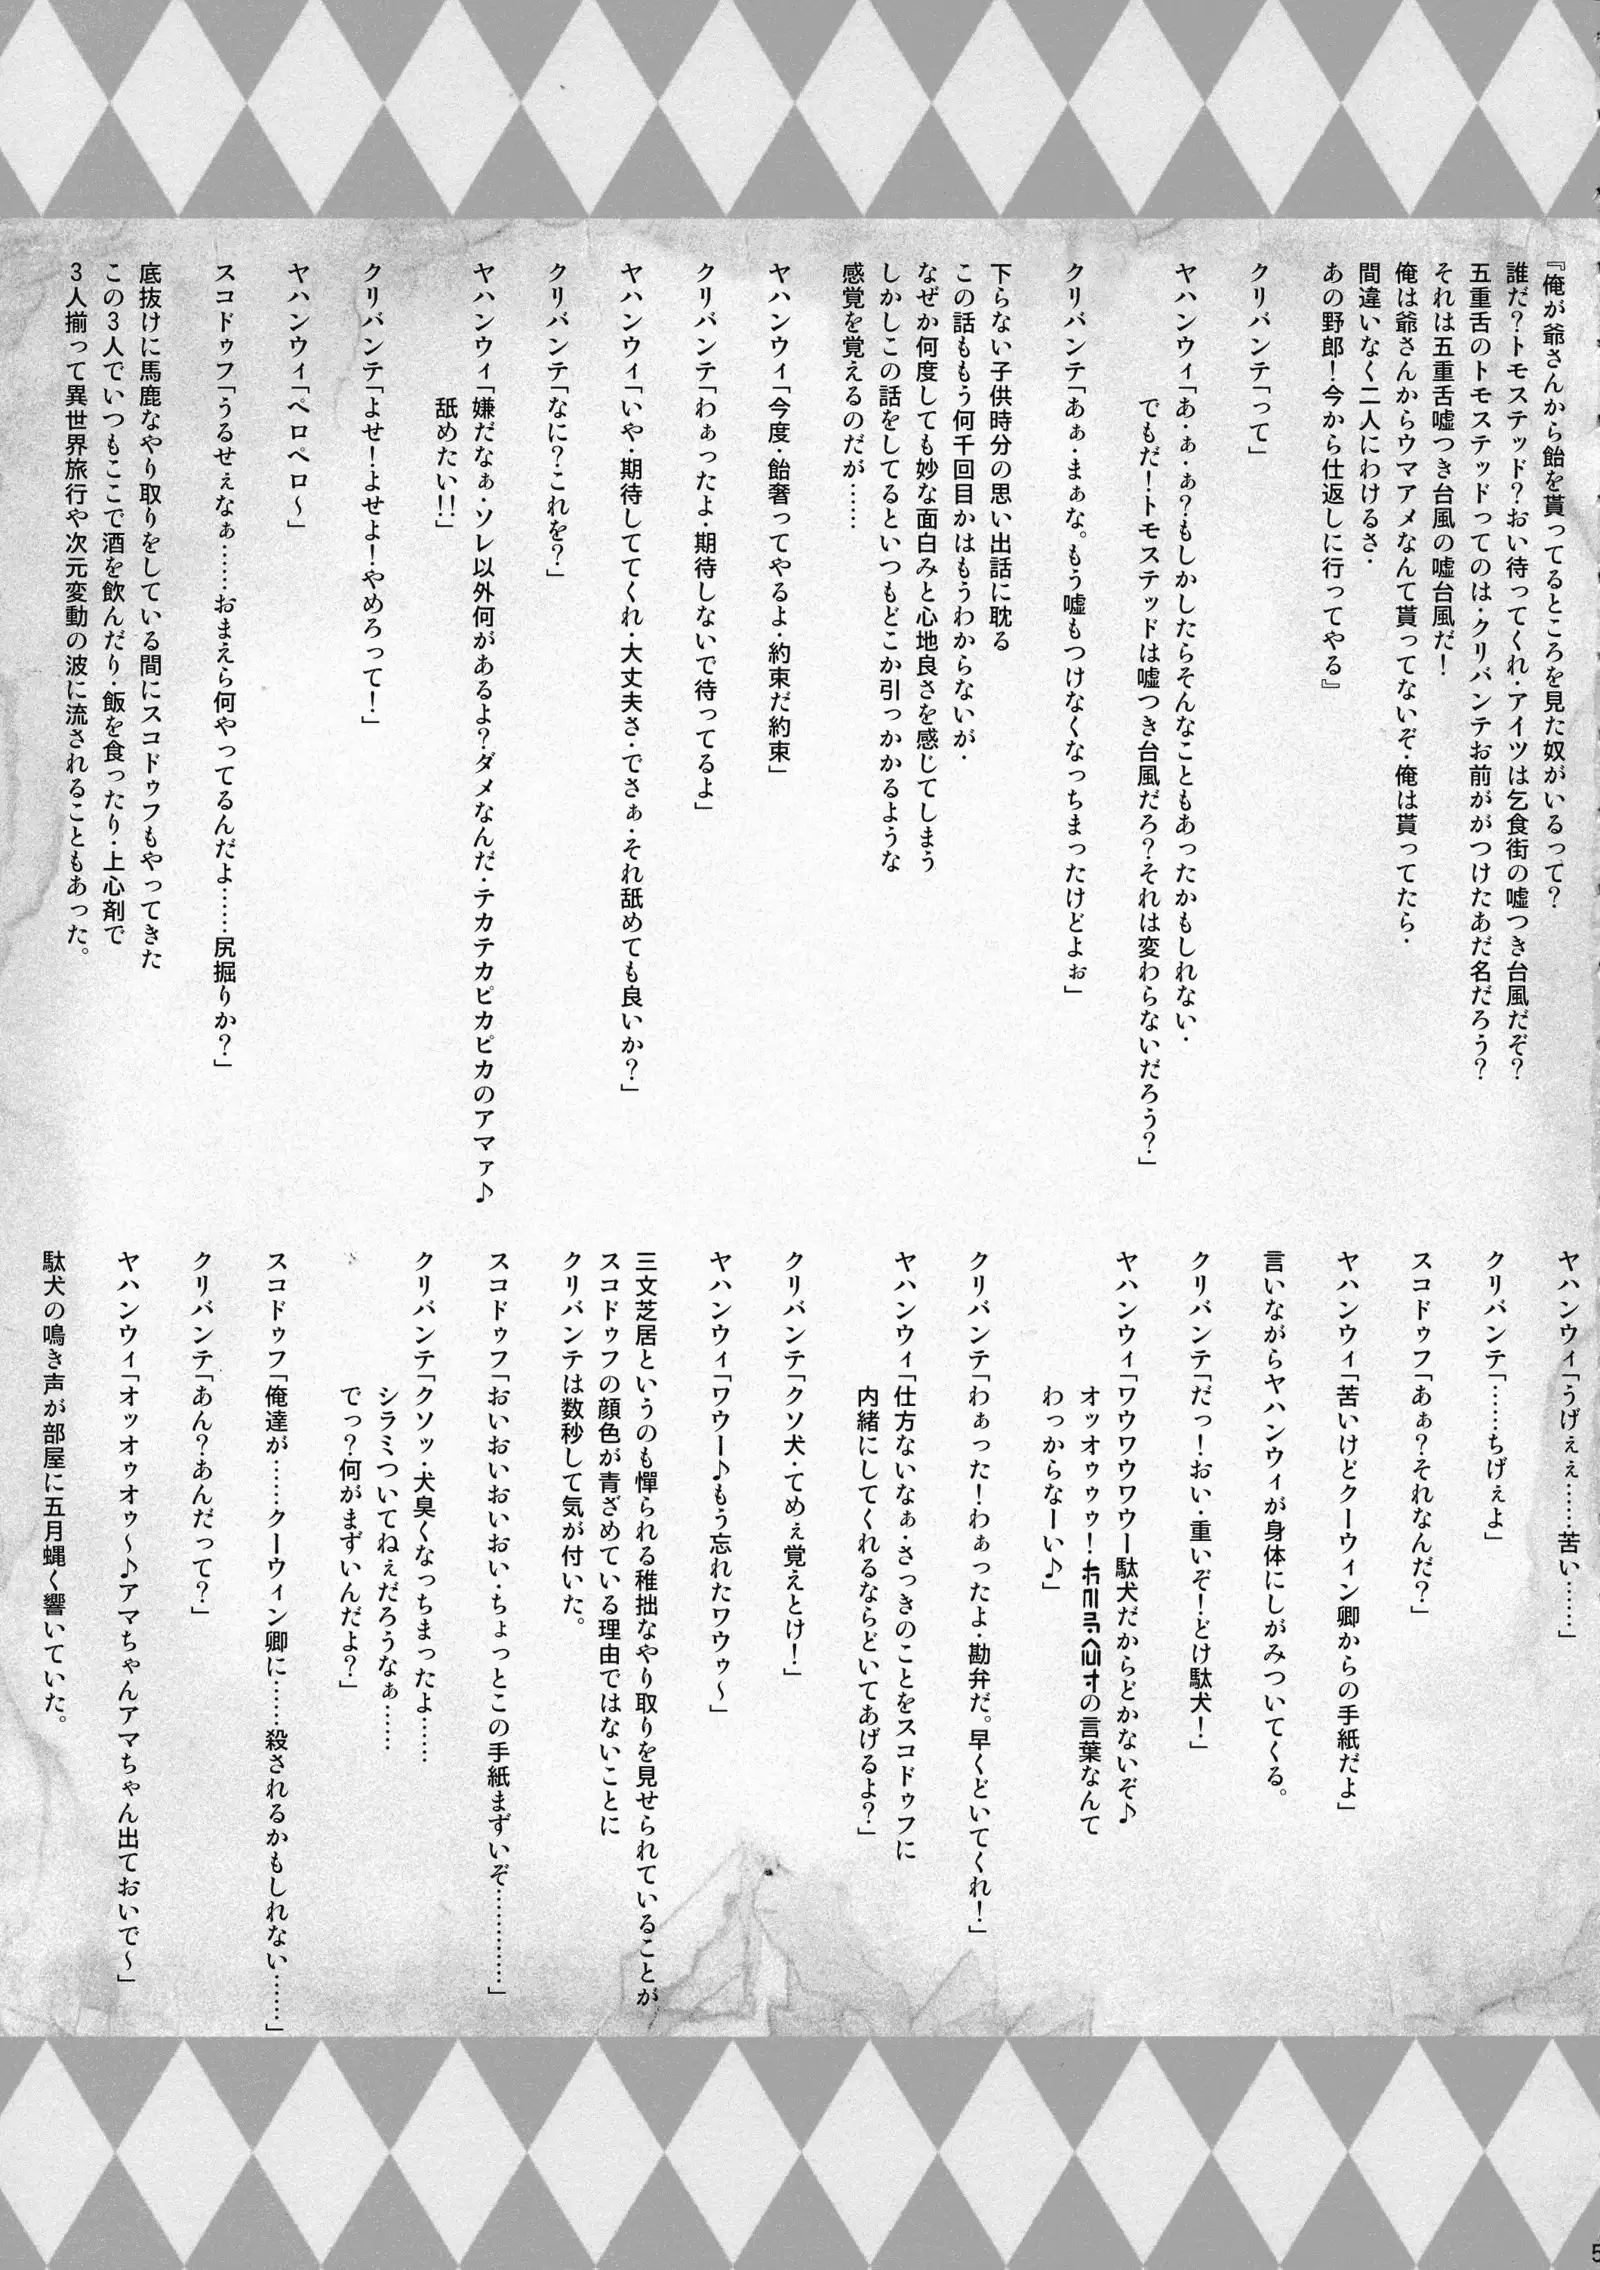 『俺が爺さんから飴を貰ってるところを見た奴がいるって？
誰だ？トモステッド？おい待ってくれ・アイツは乞食街の嘘つき台風だぞ？
五重舌のトモステッドってのは・クリバンテお前ががつけたあだ名だろう？
それは五重舌嘘つき台風の嘘台風だ！
俺は爺さんからウマアメなんて貰ってないぞ・俺は貰ってたら・
間違いなく二人にわけるさ・
あの野郎！今から仕返しに行ってやる』
クリバンテ「って」
ヤハンウィ「あ・ぁ・ぁ？もしかしたらそんなこともあったかもしれない・
でもだ！トモステッドは嘘つき台風だろ？それは変わらないだろう？」
クリバンテ「あぁ・まぁな。もう嘘もつけなくなっちまったけどよぉ」
下らない子供時分の思い出話に耽る
この話ももう何千回目かはもうわからないが・
なぜか何度しても妙な面白みと心地良さを感じてしまう
しかしこの話をしてるといつもどこか引っかかるような
感覚を覚えるのだが……
ヤハンウィ「今度・飴奢ってやるよ・約束だ約束」
クリバンテ「わぁったよ・期待しないで待ってるよ」
ヤハンウィ「いや・期待しててくれ・大丈夫さ・でさぁ・それ舐めても良いか？」
クリバンテ「なに？これを？」
ヤハンウィ「嫌だなぁ・ソレ以外何があるよ？ダメなんだ・テカテカピカピカのアマァ♪
舐めたい!!」
クリバンテ「よせ！よせよ！やめろって！」
ヤハンウィ「ペロペロ〜」
スコドゥフ「うるせぇなぁ……おまえら何やってるんだよ……尻掘りか？」
底抜けに馬鹿なやり取りをしている間にスコドゥフもやってきた
この３人でいつもここで酒を飲んだり・飯を食ったり・上心剤で
３人揃って異世界旅行や次元変動の波に流されることもあった。
ヤハンウィ「うげぇぇ……苦い……」
クリバンテ「……ちげぇよ」
スコドゥフ「あぁ？それなんだ？」
ヤハンウィ「苦いけどクーウィン卿からの手紙だよ」
言いながらヤハンウィが身体にしがみついてくる。
クリバンテ「だっ！おい・重いぞ！どけ駄犬！」
ヤハンウィ「ワウワウワウー駄犬だからどかないぞ♪
オッオゥゥゥ！の言葉なんて
わっからなーい♪」
クリバンテ「わぁった！わぁったよ・勘弁だ。早くどいてくれ！」
ヤハンウィ「仕方ないいなぁ・さっきのことをスコドゥフに
内緒にしてくれるならどいてあげるよ？」
クリバンテ「クソ犬・てめぇ覚えとけ！」
ヤハンウィ「ワウー♪もう忘れたワウゥ〜」
三文芝居というのも憚られる稚拙なやり取りを見せられていることが
スコドゥフの顔色が青ざめている理由ではないことに
クリバンテは数秒して気が付いた。
スコドゥフ「おいおいおいおい・ちょっとこの手紙まずいぞ…………」
クリバンテ「クソッ・犬臭くなっちまったよ……
シラミついてねぇだろうなぁ……
でっ？何がまずいんだよ？」
スコドゥフ「俺達が……クーウィン卿に……殺されるかもしれない……」
クリバンテ「あん？あんだって？」
ヤハンウィ「オッオゥオゥ〜♪アマちゃんアマちゃん出ておいで〜」
駄犬の鳴き声が部屋に五月蝿く響いていた。
5